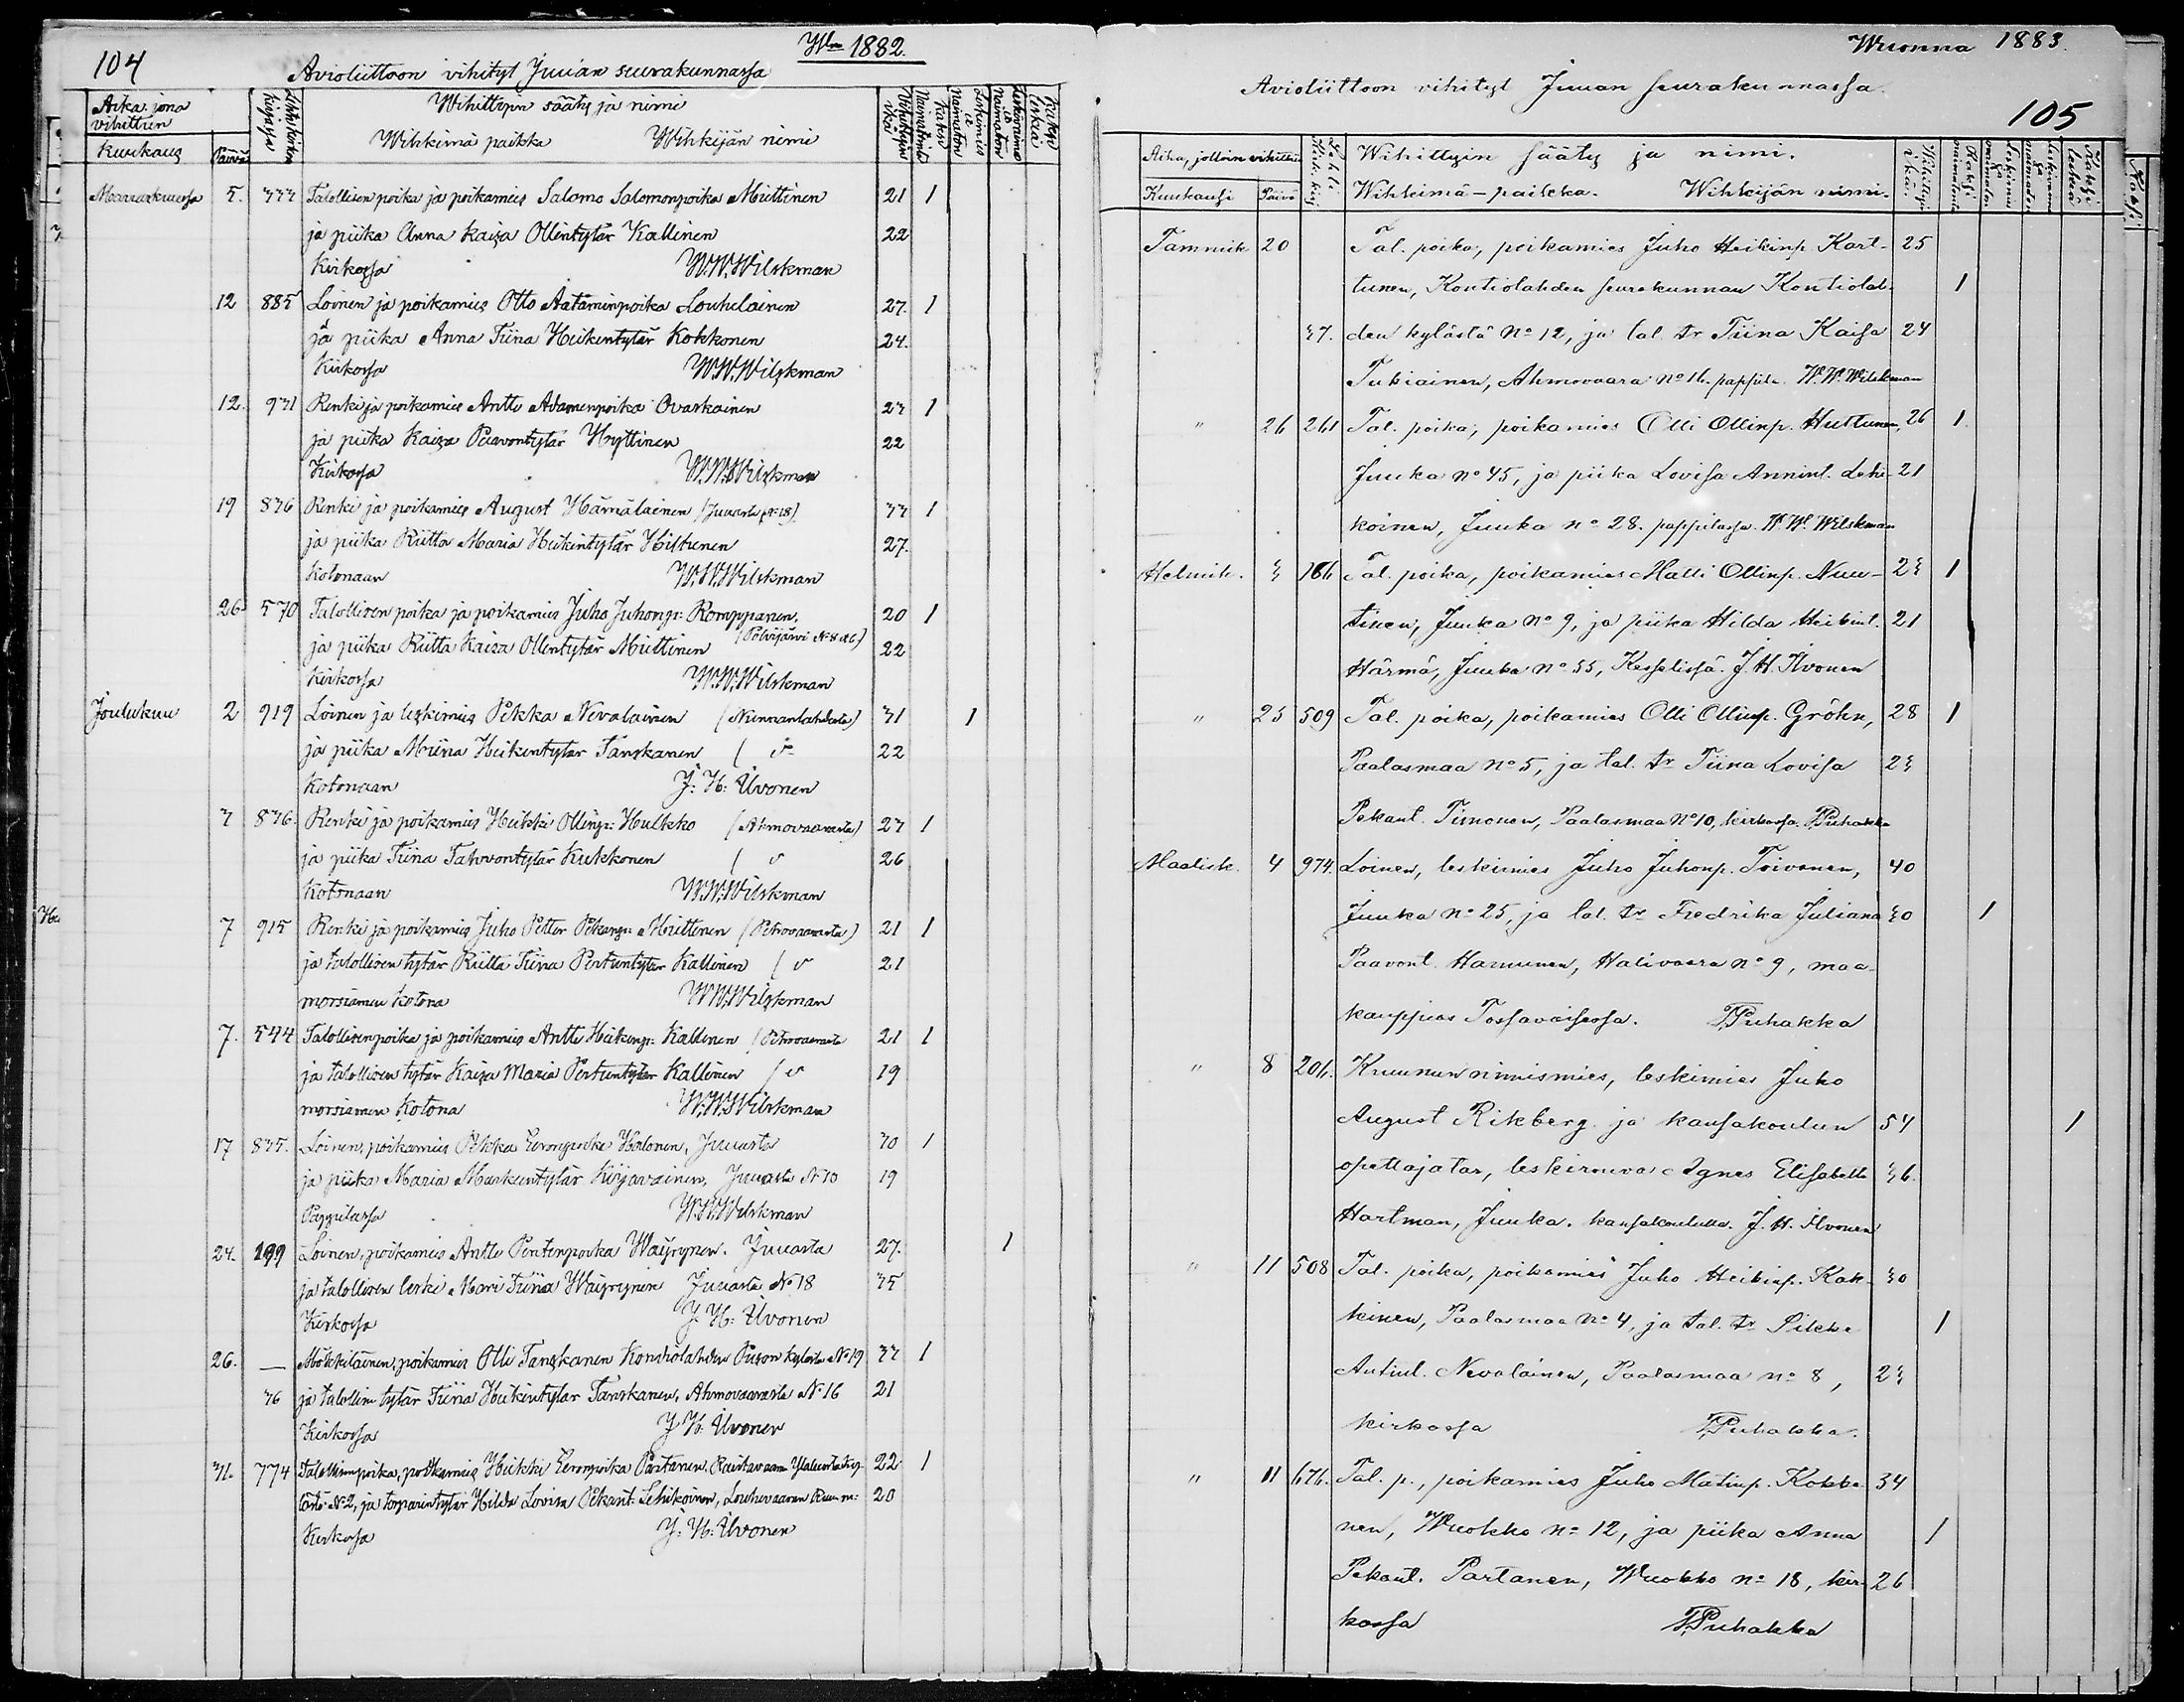 104
Wna 1882.
Avioliittoon vihityt Juuan seurakunnassa
Aika jona vihittiin
Kuukaus Päivä
Wihittyin sääty ja nimi
Wihkimä paikka Wihkijän nimi
Marraskuussa 5. 333 Talollisen poika ja poikamies Salomo Salomonpoika Miettinen 21 1
ja piika Anna Kaisa Ollintytär Kallinen 22
Kirkossa W.W.Wilskman
12 885 Loinen ja poikamies Otto Aataminpoika Louhelainen 27. 1
ja piika Anna Tiina Heikintytär Kokkonen 24.
Kirkossa W.W.Wilskman
12. 931 Renki ja poikamies Antti Adamenpoika Ovaskainen 23 1
ja piika Kaisa Paavontytär Hyttinen 22
Kirkossa W.W.Wilskman
19 836 Renki ja poikamies August Hämäläinen (Juuasta N:18) 33 1
ja piika Riitta Maria Heikintytär Hiltunen 27.
Kotonaan W.W.Wilskman
26 570 Talollisen poika ja poikamies Juho Juhonp: Romppanen, 20 1
(Polvijärvi N:8 A6)
ja piika Riitta Kaisa Ollintytär Miettinen 22
Kirkossa W.W.Wilskman
Joulukuu 2 919 Loinen ja leskimies Pekka Nevalainen (Nunnanlahdesta) 31 1
ja piika Miina Heikintytär Tanskanen ( v 22
Kotonaan J: H: Ilvonen
3 836. Renki ja poikamies Heikki Ollinp: Hulkko (Ahmovaarasta) 23 1
ja piika Tiina Tahvontytär Kukkonen ( v 26
Kotonaan W.W.Wilskman
7 915 Renki ja poikamies Juho Petter Pekanp: Huttinen (Petrovaarasta) 21 1
ja talollisen tytär Riitta Tiina Pertuntytär Kallinen ( v 21
morsiamen kotona W.W.Wilskman
7. 544 Talollisenpoika ja poikamies Antti Heikinp: Kallinen (Petrovaarasta 21 1
ja talollisen tytär Kaisa Maria Pertuntytär Kallinen ( v 19
morsiamen kotona W.W.Wilskman
17 835. Loinen, poikamies Pekka Eeronpoika Halonen, Juuasta 30 1
ja piika Maria Markuntytär Kirjavainen, Juuasta N:30 19
Pappilassa W.W.Wilskman
24. 199 Loinen, poikamies Antti Pentinpoika Wäyrynen. Juuasta 27. 1
ja talollisen leski Mari Tiina Wäyrynen Juuasta N:o 18 35
Kirkossa J: H: Ilvonen
26. — Mökkiläinen, poikamies Olli Tanskanen Kondiolahden Puson kylästä N:o 19 33 1
36 ja talollisen tytär Tiina Heikintytär Tanskanen, Ahmovaarasta N:o 16 21
Kirkossa J H: Ilvonen
31. 774 Talollisenpoika, poikamies Heikki Eeronpoika Partanen, 22 1
N:2, ja torparintytär Hilda Lovisa Pekant: Lehikoinen, Louhivaaran 20
Kirkossa J: H: Ilvonen
Wuonna 1883.
Avioliittoon vihityt Juuan seurakunnassa.
105
Aika, jolloin vihittiin Wihittyin sääty ja nimi.
Kuukausi Päivä Wihkimä-paikka. Wihkijän nimi.
Tammik 20 Tal. poika, poikamies Juho Heikinp. Kart- 25
tunen, Kontiolahden seurakunnan Kontiolah- 1
37. den kylästä No 12, ja tal. tr Tiina Kaisa 24
Tukiainen, Ahmovaara No 16. pappila. W.W.Wilskman
" 26 261 Tal. poika, poikamies Olli Ollinp. Huttunen, 26 1
Juuka No 45, ja piika Lovisa Annint. Lehi- 21
koinen, Juuka No 28. pappilassa. W.W. Wilskman
Helmik. 3 166 Tal. poika, poikamies Matti Ollinp. Nuu- 23 1
tinen, Juuka No 9, ja piika Hilda Heikint. 21
Härmä, Juuka No 55, Kesselissä. J. H. Ilvonen
" 25 509 Tal. poika, poikamies Olli Ollinp. Gröhn, 28 1
Paalasmaa No 5, ja tal. tr Tiina Lovisa 23
Pekant. Timonen, Paalasmaa No 10, kirkossa. T.Puhakka
Maalisk. 4 974. Loinen, leskimies Juho Juhonp. Toivanen, 40
Juuka No 25, ja tal. tr Fredrika Juliana 30 1
Paavont. Hamunen, Halivaara No 9, maa-
kauppias Tossavaisessa. T.Puhakka
" 8 206. Kruununnimismies, leskimies Juho
August Rikberg ja kansakoulun 54 1
opettajatar, leskirouva Agnes Elisabeth 36.
Hartman, Juuka. kansakoululla. J. H. Ilvonen
" 11 508 Tal. poika, poikamies Juho Heikinp. Kak- 30
kinen, Paalasmaa No 4, ja tal. tr Pikka 1
Antint. Nevalainen, Paalasmaa No 8, 23
kirkossa T.Puhakka.
" 11 676. Tal. p., poikamies Juho Matinp. Kokko- 34
nen, Wuokko No 12, ja piika Anna 1
Pekant. Partanen, Wuokko No 18, kir- 26
kossa T.Puhakka